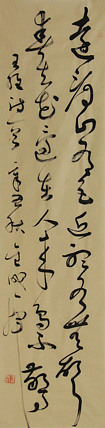 遠看山有色近聽水無聲
春去花還在人來鳥不驚
王維詩畫 辛丑秋